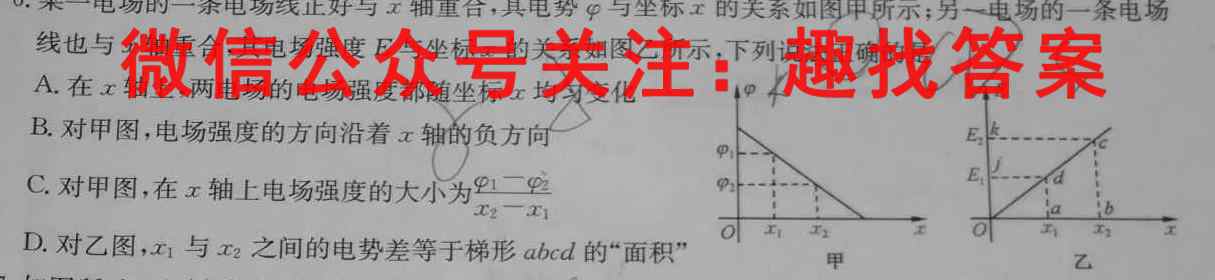 某一电场的一条电场线正好与 x 轴重合,其电势 φ 与坐标 x 的关系如图甲所示;另一电场的一条电场
线也与 x 轴重合,其电场强度 E 与坐标 x 的关系如图乙所示,下列说法正确的是
微信公众号关注：趣找答案
A. 在 x 轴上,两电场的电场强度都随坐标 x 均匀变化
B. 对甲图,电场强度的方向沿着 x 轴的负方向
C. 对甲图,在 x 轴上电场强度的大小为 (φ₁－φ₂)/(x₂－x₁)
D. 对乙图,x₁ 与 x₂ 之间的电势差等于梯形 abcd 的“面积”
φ
φ₁
φ₂
O x₁ x₂ x
甲
E₂ k c
E₁ j d
a b
O x₁ x₂ x
乙